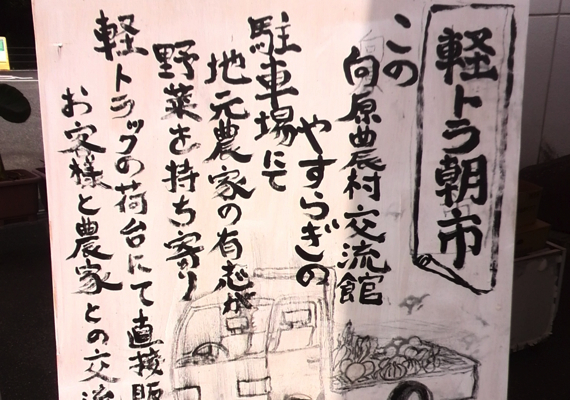 軽トラ朝市
この
向原農村交流館
やすらぎの
駐車場にて
地元農家の有志が
野菜を持ち寄り
軽トラックの荷台にて直接販
お客様と農家との交流